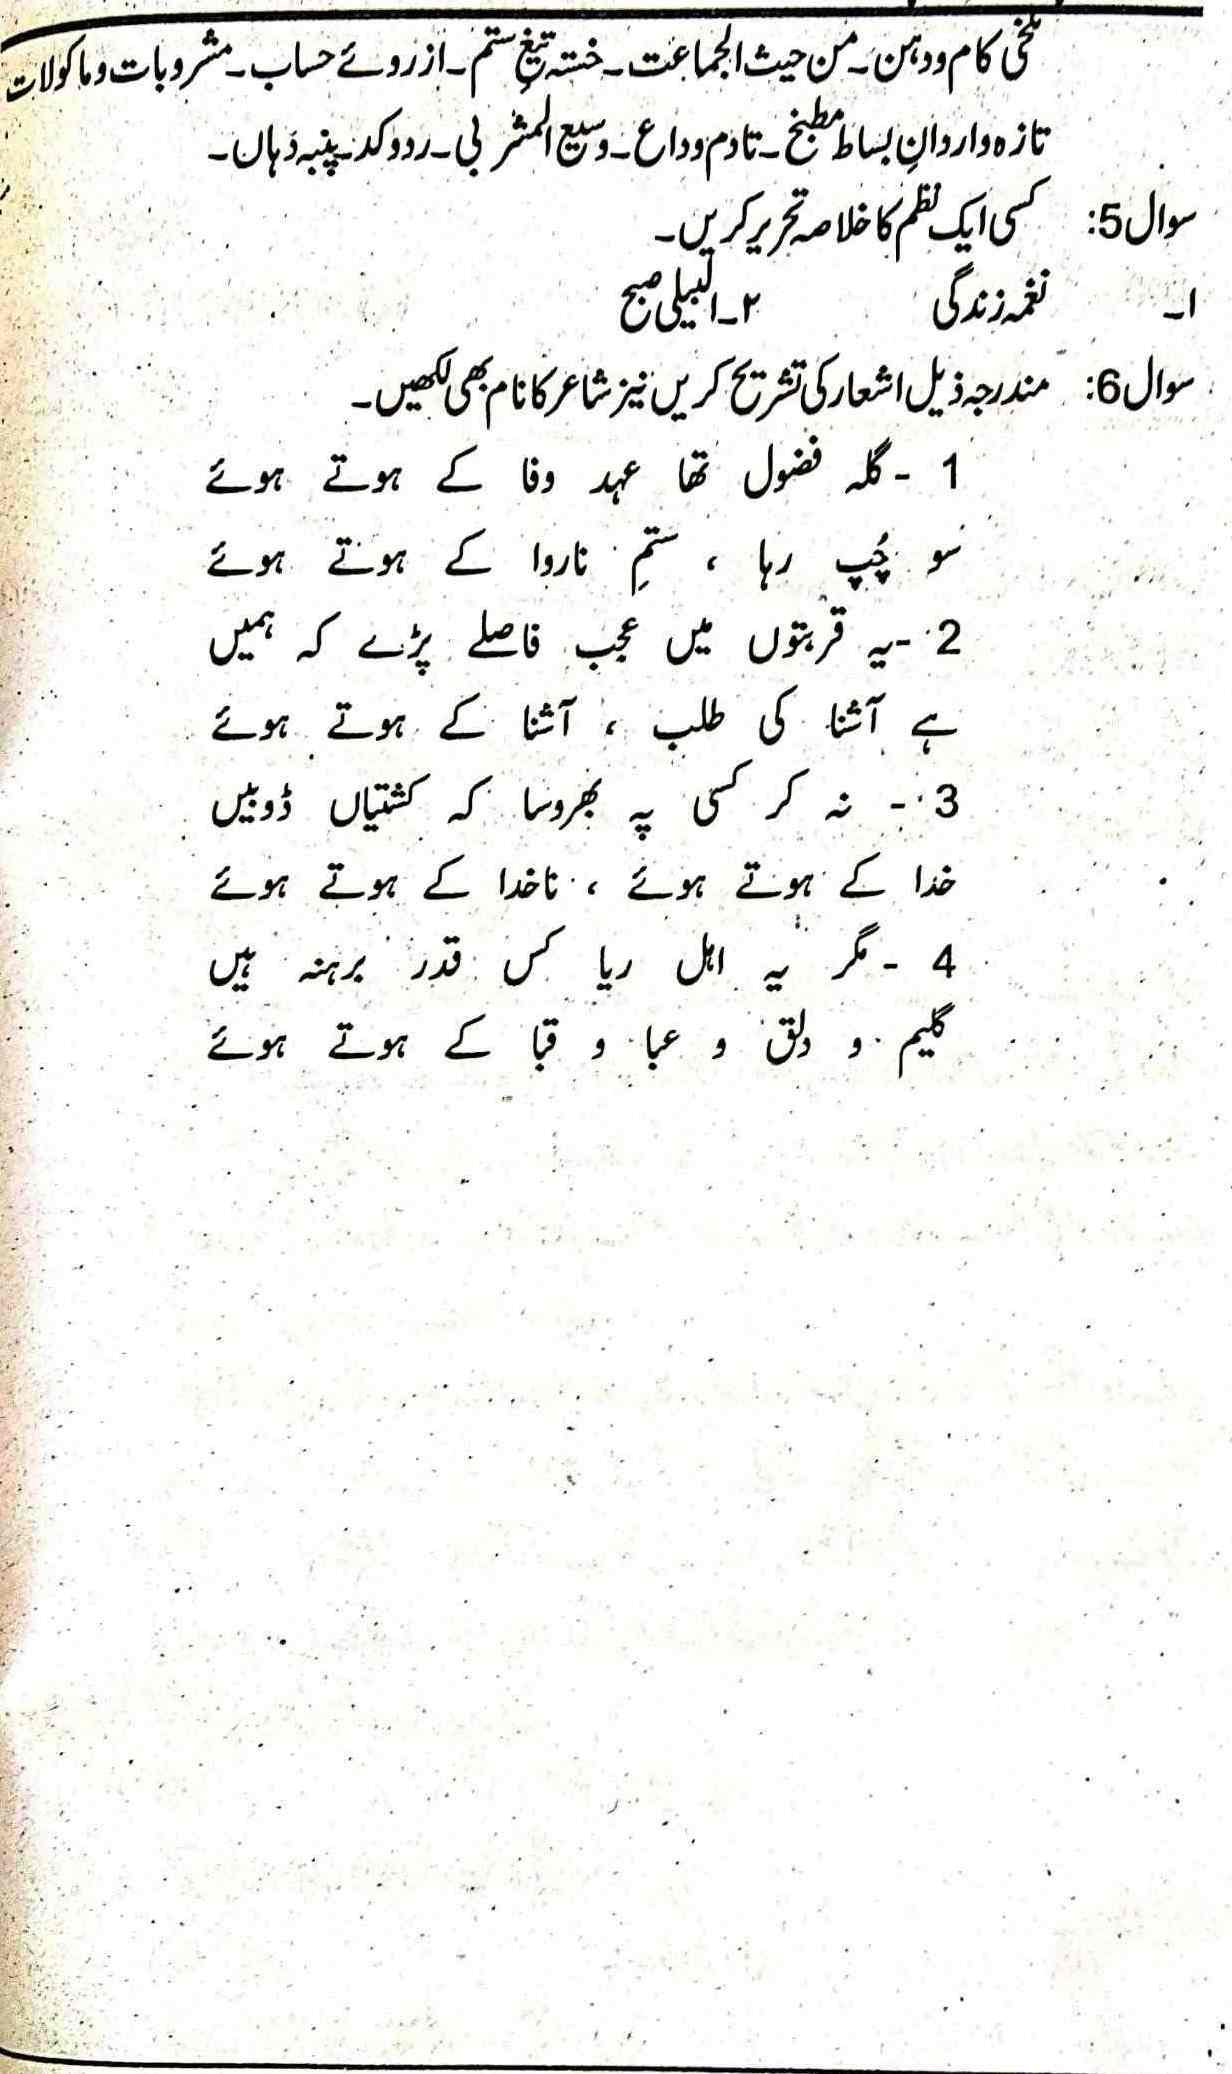 تلخی کام و دہن۔ من حیث الجماعت۔ خستہ تیغِ ستم۔ از روئے حساب۔ مشروبات و ماکولات
تازہ واردانِ بساط مطبخ۔ تادم وداع۔ وسیع المشربی۔ ردوکد۔ پنبہ دَہاں۔
سوال 5: کسی ایک نظم کا خلاصہ تحریر کریں۔
۱۔ نغمہ زندگی ۲۔ البیلی صبح
سوال 6: مندرجہ ذیل اشعار کی تشریح کریں نیز شاعر کا نام بھی لکھیں۔
1 - گلہ فضول تھا عہد وفا کے ہوتے ہوئے
سو چُپ رہا ، ستمِ ناروا کے ہوتے ہوئے
2 - یہ قربتوں میں عجب فاصلے پڑے کہ ہمیں
ہے آشنا کی طلب ، آشنا کے ہوتے ہوئے
3 - نہ کر کسی پہ بھروسا کہ کشتیاں ڈوبیں
خدا کے ہوتے ہوئے ، ناخدا کے ہوتے ہوئے
4 - مگر یہ اہل ریا کس قدر برہنہ ہیں
گلیم و دلق و عبا و قبا کے ہوتے ہوئے